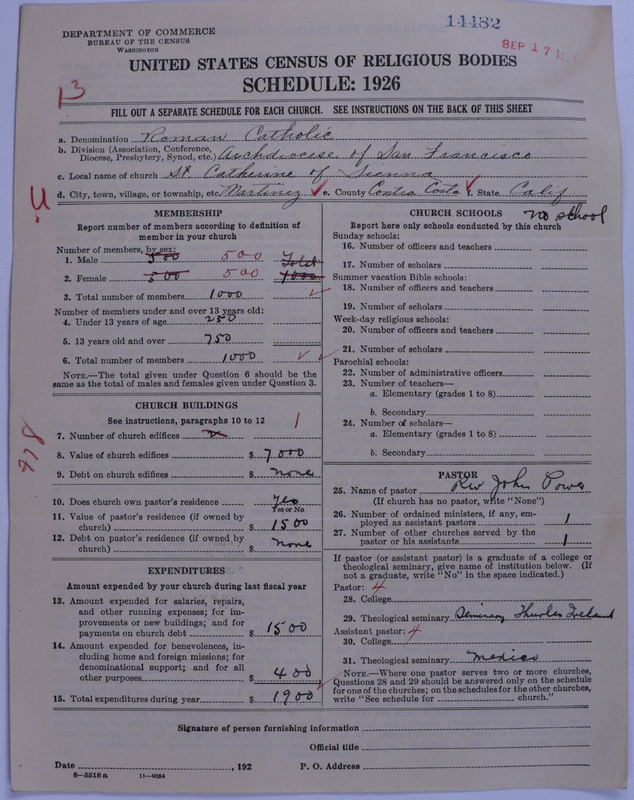 14482
SEP 17 19
DEPARTMENT OF COMMERCE
BUREAU OF THE CENSUS
WASHINGTON
UNITED STATES CENSUS OF RELIGIOUS BODIES
SCHEDULE: 1926
13
FILL OUT A SEPARATE SCHEDULE FOR EACH CHURCH. SEE INSTRUCTIONS ON THE BACK OF THIS SHEET
a. Denomination Roman Catholic
b. Division (Association, Conference, Diocese, Presbytery, Synod, etc.) Archdiocese of San Francisco
c. Local name of church St. Catherine of Sienna
d. City, town, village, or township, etc. Martinez e. County Contra Costa f. State Calif
MEMBERSHIP
Report number of members according to definition of
member in your church
Number of members, by sex:
1. Male 500 500 Total
2. Female 500 500 1000
3. Total number of members 1000
Number of members under and over 13 years old:
4. Under 13 years of age 250
5. 13 years old and over 750
6. Total number of members 1000
NOTE.—The total given under Question 6 should be
same as the total of males and females given under Question 3.
CHURCH BUILDINGS
See instructions, paragraphs 10 to 12 1
7. Number of church edifices
8. Value of church edifices $ 7000
9. Debt on church edifices $ none
918
10. Does church own pastor's residence Yes
Yes or No
11. Value of pastor's residence (if owned by
church) $ 1500
12. Debt on pastor's residence (if owned by
church) $ none
EXPENDITURES
Amount expended by your church during last fiscal year
13. Amount expended for salaries, repairs,
and other running expenses; for im-
provements or new buildings; and for
payments on church debt $ 1500
14. Amount expended for benevolences, in-
cluding home and foreign missions; for
denominational support; and for all
other purposes $ 400
15. Total expenditures during year $ 1900
CHURCH SCHOOLS no school
Report here only schools conducted by this church
Sunday schools:
16. Number of officers and teachers
17. Number of scholars
Summer vacation Bible schools:
18. Number of officers and teachers
19. Number of scholars
Week-day religious schools:
20. Number of officers and teachers
21. Number of scholars
Parochial schools:
22. Number of administrative officers
23. Number of teachers—
a. Elementary (grades 1 to 8)
b. Secondary
24. Number of scholars—
a. Elementary (grades 1 to 8)
b. Secondary
PASTOR
25. Name of pastor Rev John Power
(If church has no pastor, write "None")
26. Number of ordained ministers, if any, em-
ployed as assistant pastors 1
27. Number of other churches served by the
pastor or his assistants 1
If pastor (or assistant pastor) is a graduate of a college or
theological seminary, give name of institution below. (If
not a graduate, write "No" in the space indicated.)
Pastor: 4
28. College
29. Theological seminary Seminary Thurles Ireland
Assistant pastor: 4
30. College
31. Theological seminary Mexico
NOTE.—Where one pastor serves two or more churches,
Questions 28 and 29 should be answered only on the schedule
for one of the churches; on the schedules for the other churches,
write "See schedule for church."
Signature of person furnishing information
Official title
Date , 192 P. O. Address
8—5518 a 11—9054